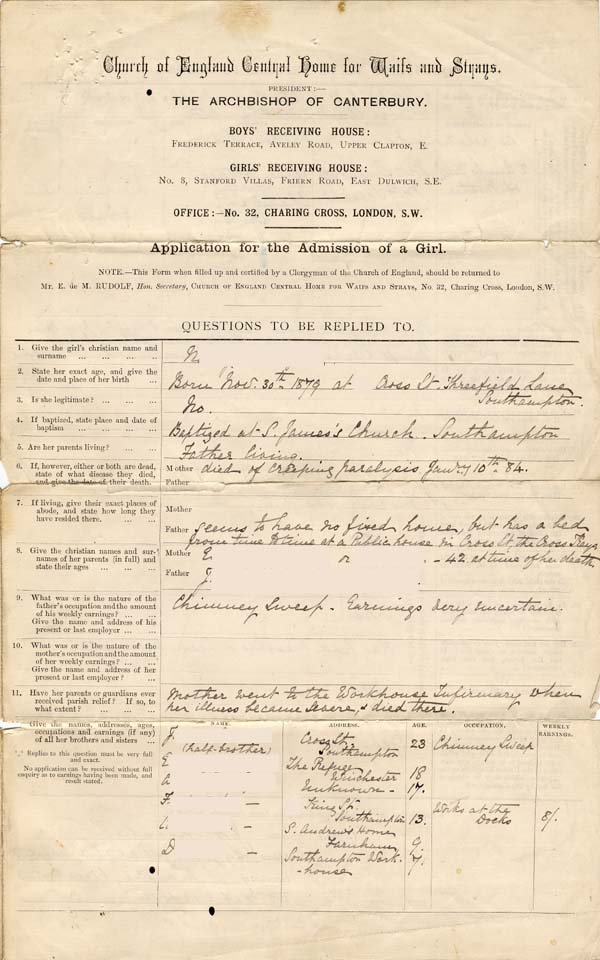 Church of England Central Home for Waifs and Strays.
PRESIDENT:—
THE ARCHBISHOP OF CANTERBURY.
BOYS' RECEIVING HOUSE:
FREDERICK TERRACE, AVELEY ROAD, UPPER CLAPTON, E.
GIRLS' RECEIVING HOUSE:
No. 8, STANFORD VILLAS, FRIERN ROAD, EAST DULWICH, S.E.
OFFICE:—No. 32, CHARING CROSS, LONDON, S.W.
Application for the Admission of a Girl.
NOTE.—This Form when filled up and certified by a Clergyman of the Church of England, should be returned to
Mr. E. de M. RUDOLF, Hon. Secretary, CHURCH OF ENGLAND CENTRAL HOME FOR WAIFS AND STRAYS, No. 32, Charing Cross, London, S.W.
QUESTIONS TO BE REPLIED TO.
1. Give the girl's christian name and
surname ... ... ... ...
N
2. State her exact age, and give the
date and place of her birth ...
Born Nov. 30th 1879 at Cross St. Threefield Lane
Southampton.
3. Is she legitimate? ... ... ...
No.
4. If baptized, state place and date of
baptism ... ... ... ...
Baptized at S. James's Church. Southampton
5. Are her parents living? ... ...
Father living.
6. If, however, either or both are dead,
state of what disease they died,
and give the date of their death.
Mother died of creeping paralysis Jany 10th 84.
Father
7. If living, give their exact places of
abode, and state how long they
have resided there. ... ...
Mother
Father Seems to have no fixed home, but has a bed
from time to time at a Public house in Cross St. the Cross Keys
8. Give the christian names and sur-
names of her parents (in full) and
state their ages ... ... ...
Mother E or - 42 at time of her death
Father J.
9. What was or is the nature of the
father's occupation and the amount
of his weekly earnings? ... ...
Give the name and address of his
present or last employer ... ...
Chimney Sweep - Earnings very uncertain.
10. What was or is the nature of the
mother's occupation and the amount
of her weekly earnings? ... ...
Give the name and address of her
present or last employer? ...
11. Have her parents or guardians ever
received parish relief? If so, to
what extent? ... ... ...
Mother went to the Workhouse Infirmary when
her illness became severe, & died there.
Give the names, addresses, ages,
occupations and earnings (if any)
of all her brothers and sisters ...
*** Replies to this question must be very full
and exact.
No application can be received without full
enquiry as to earnings having been made, and
result stated.
NAME. ADDRESS. AGE. OCCUPATION. WEEKLY EARNINGS.
J. (half-brother) Cross St. Southampton 23 Chimney Sweep
E - The Refuge Winchester 18
A - Unknown - 17.
F. - King St. Southampton 13. Works at the Docks 8/.
L. - S. Andrew's Home Farnham 9.
D - Southampton Work-house 7.